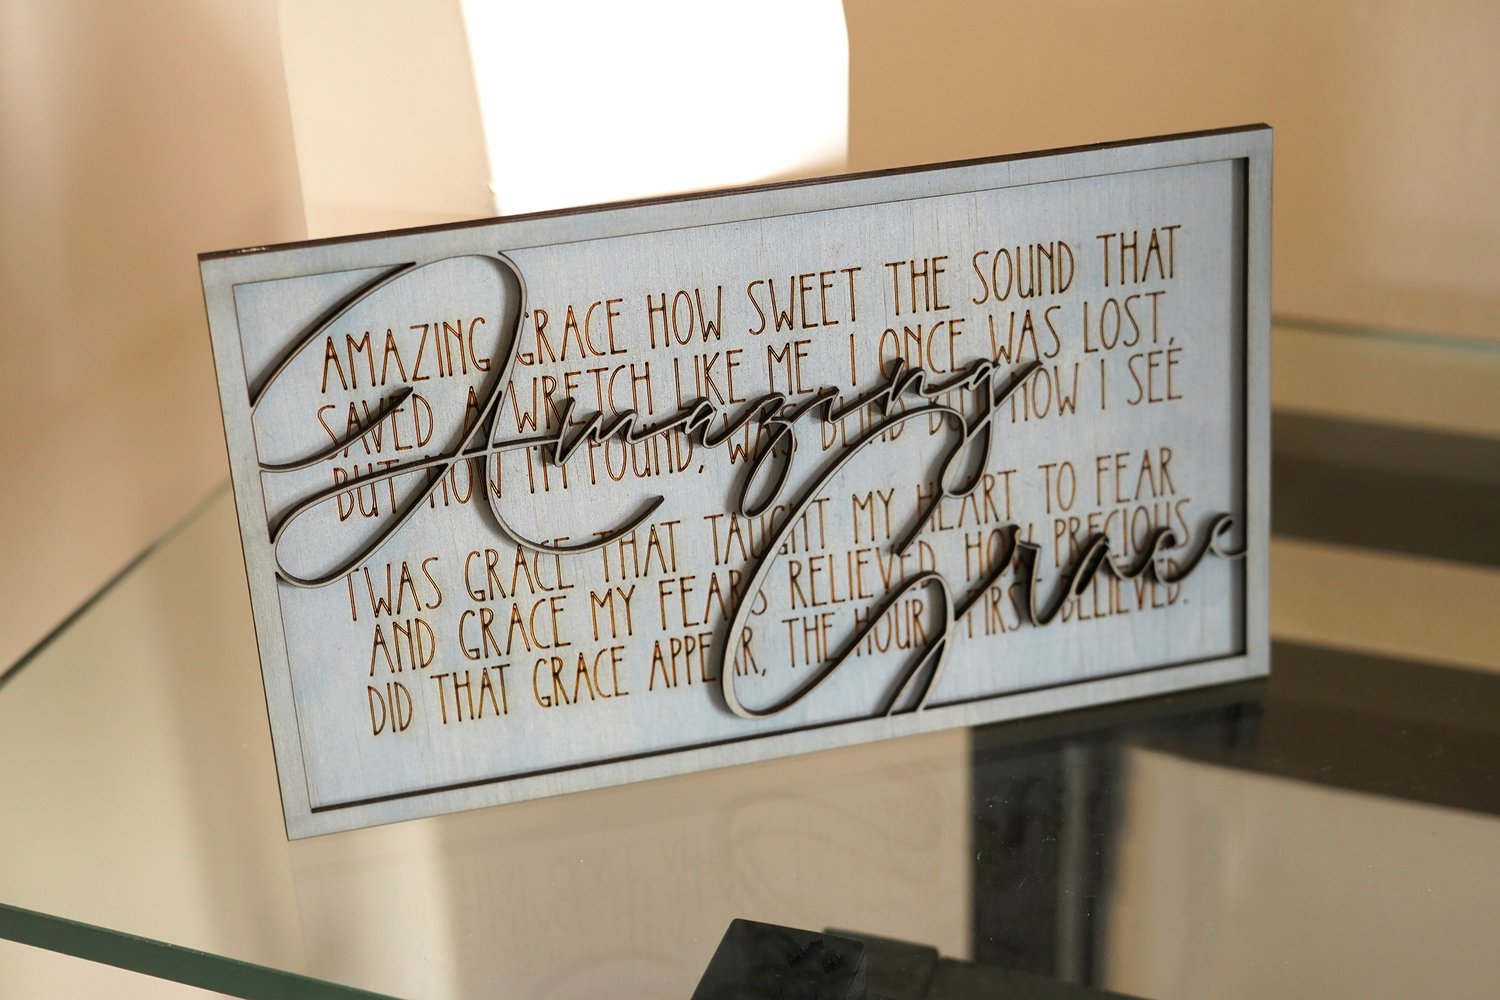 AMAZING GRACE HOW SWEET THE SOUND THAT
SAVED A WRETCH LIKE ME. I ONCE WAS LOST,
BUT NOW I'M FOUND, WAS BLIND BUT NOW I SEE
Amazing
Grace
T'WAS GRACE THAT TAUGHT MY HEART TO FEAR
AND GRACE MY FEARS RELIEVED. HOW PRECIOUS
DID THAT GRACE APPEAR, THE HOUR I FIRST BELIEVED.